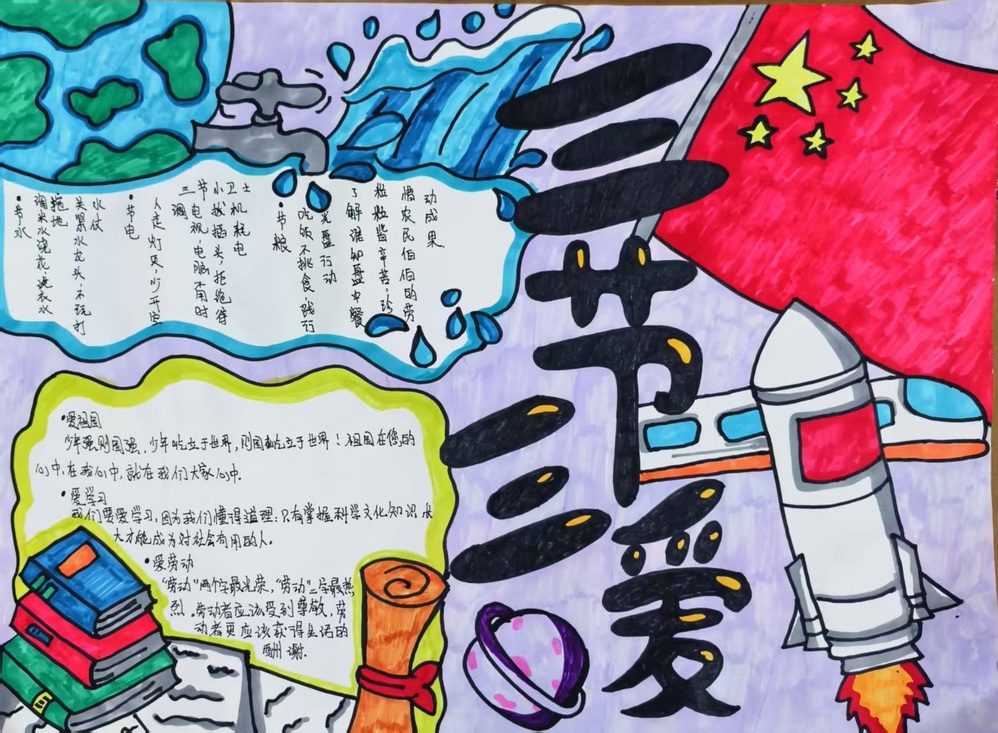 三节三爱
三节小卫士
•节水
淘米水浇花,洗衣水
拖地
关紧水龙头,不玩打
水仗
•节电
人走灯灭,少开空
调
电视,电脑不用时
拔插头,拒绝待
机耗电
•节粮
吃饭不挑食,践行
光盘行动
了解谁知盘中餐
粒粒皆辛苦,珍
惜农民伯伯的劳
动成果
•爱祖国
少年强则国强,少年屹立于世界,则国屹立于世界!祖国在您的
心中,在我心中,就在我们大家心中.
•爱学习
我们要爱学习,因为我们懂得道理:只有掌握科学文化知识,长
大才能成为对社会有用的人.
•爱劳动
"劳动"两个字最光荣,"劳动"二字最热
烈,劳动者应该受到尊敬,劳
动者更应该获得生活的
酬谢.